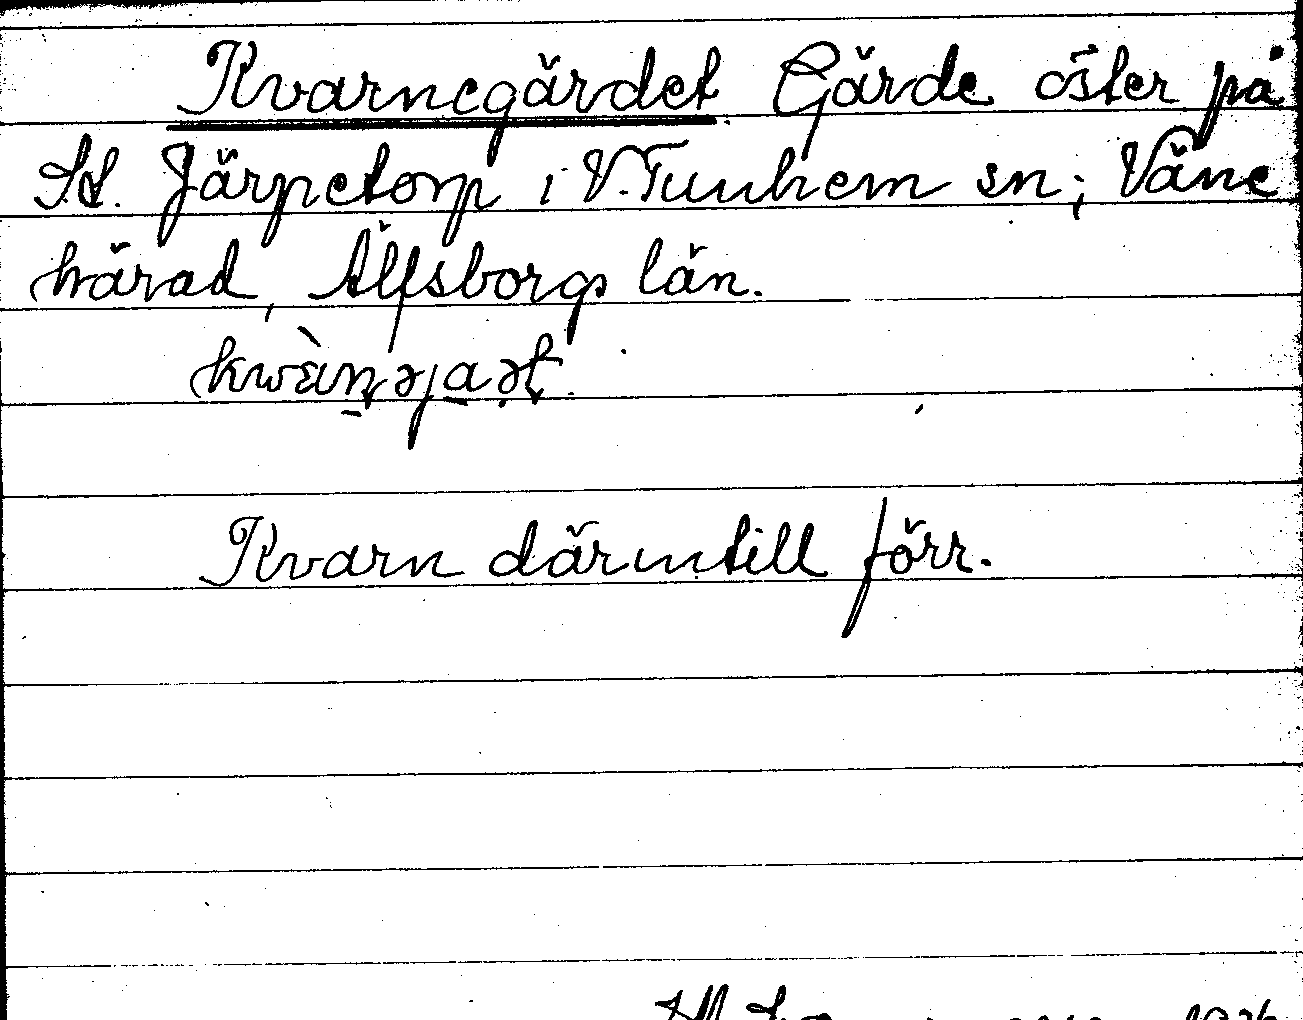 Kvarnegärdet. Gärde öster på
St. Järpetorp i V. Tunhem sn; Väne
härad, Älfsborgs län.
Kvarn därintill förr.